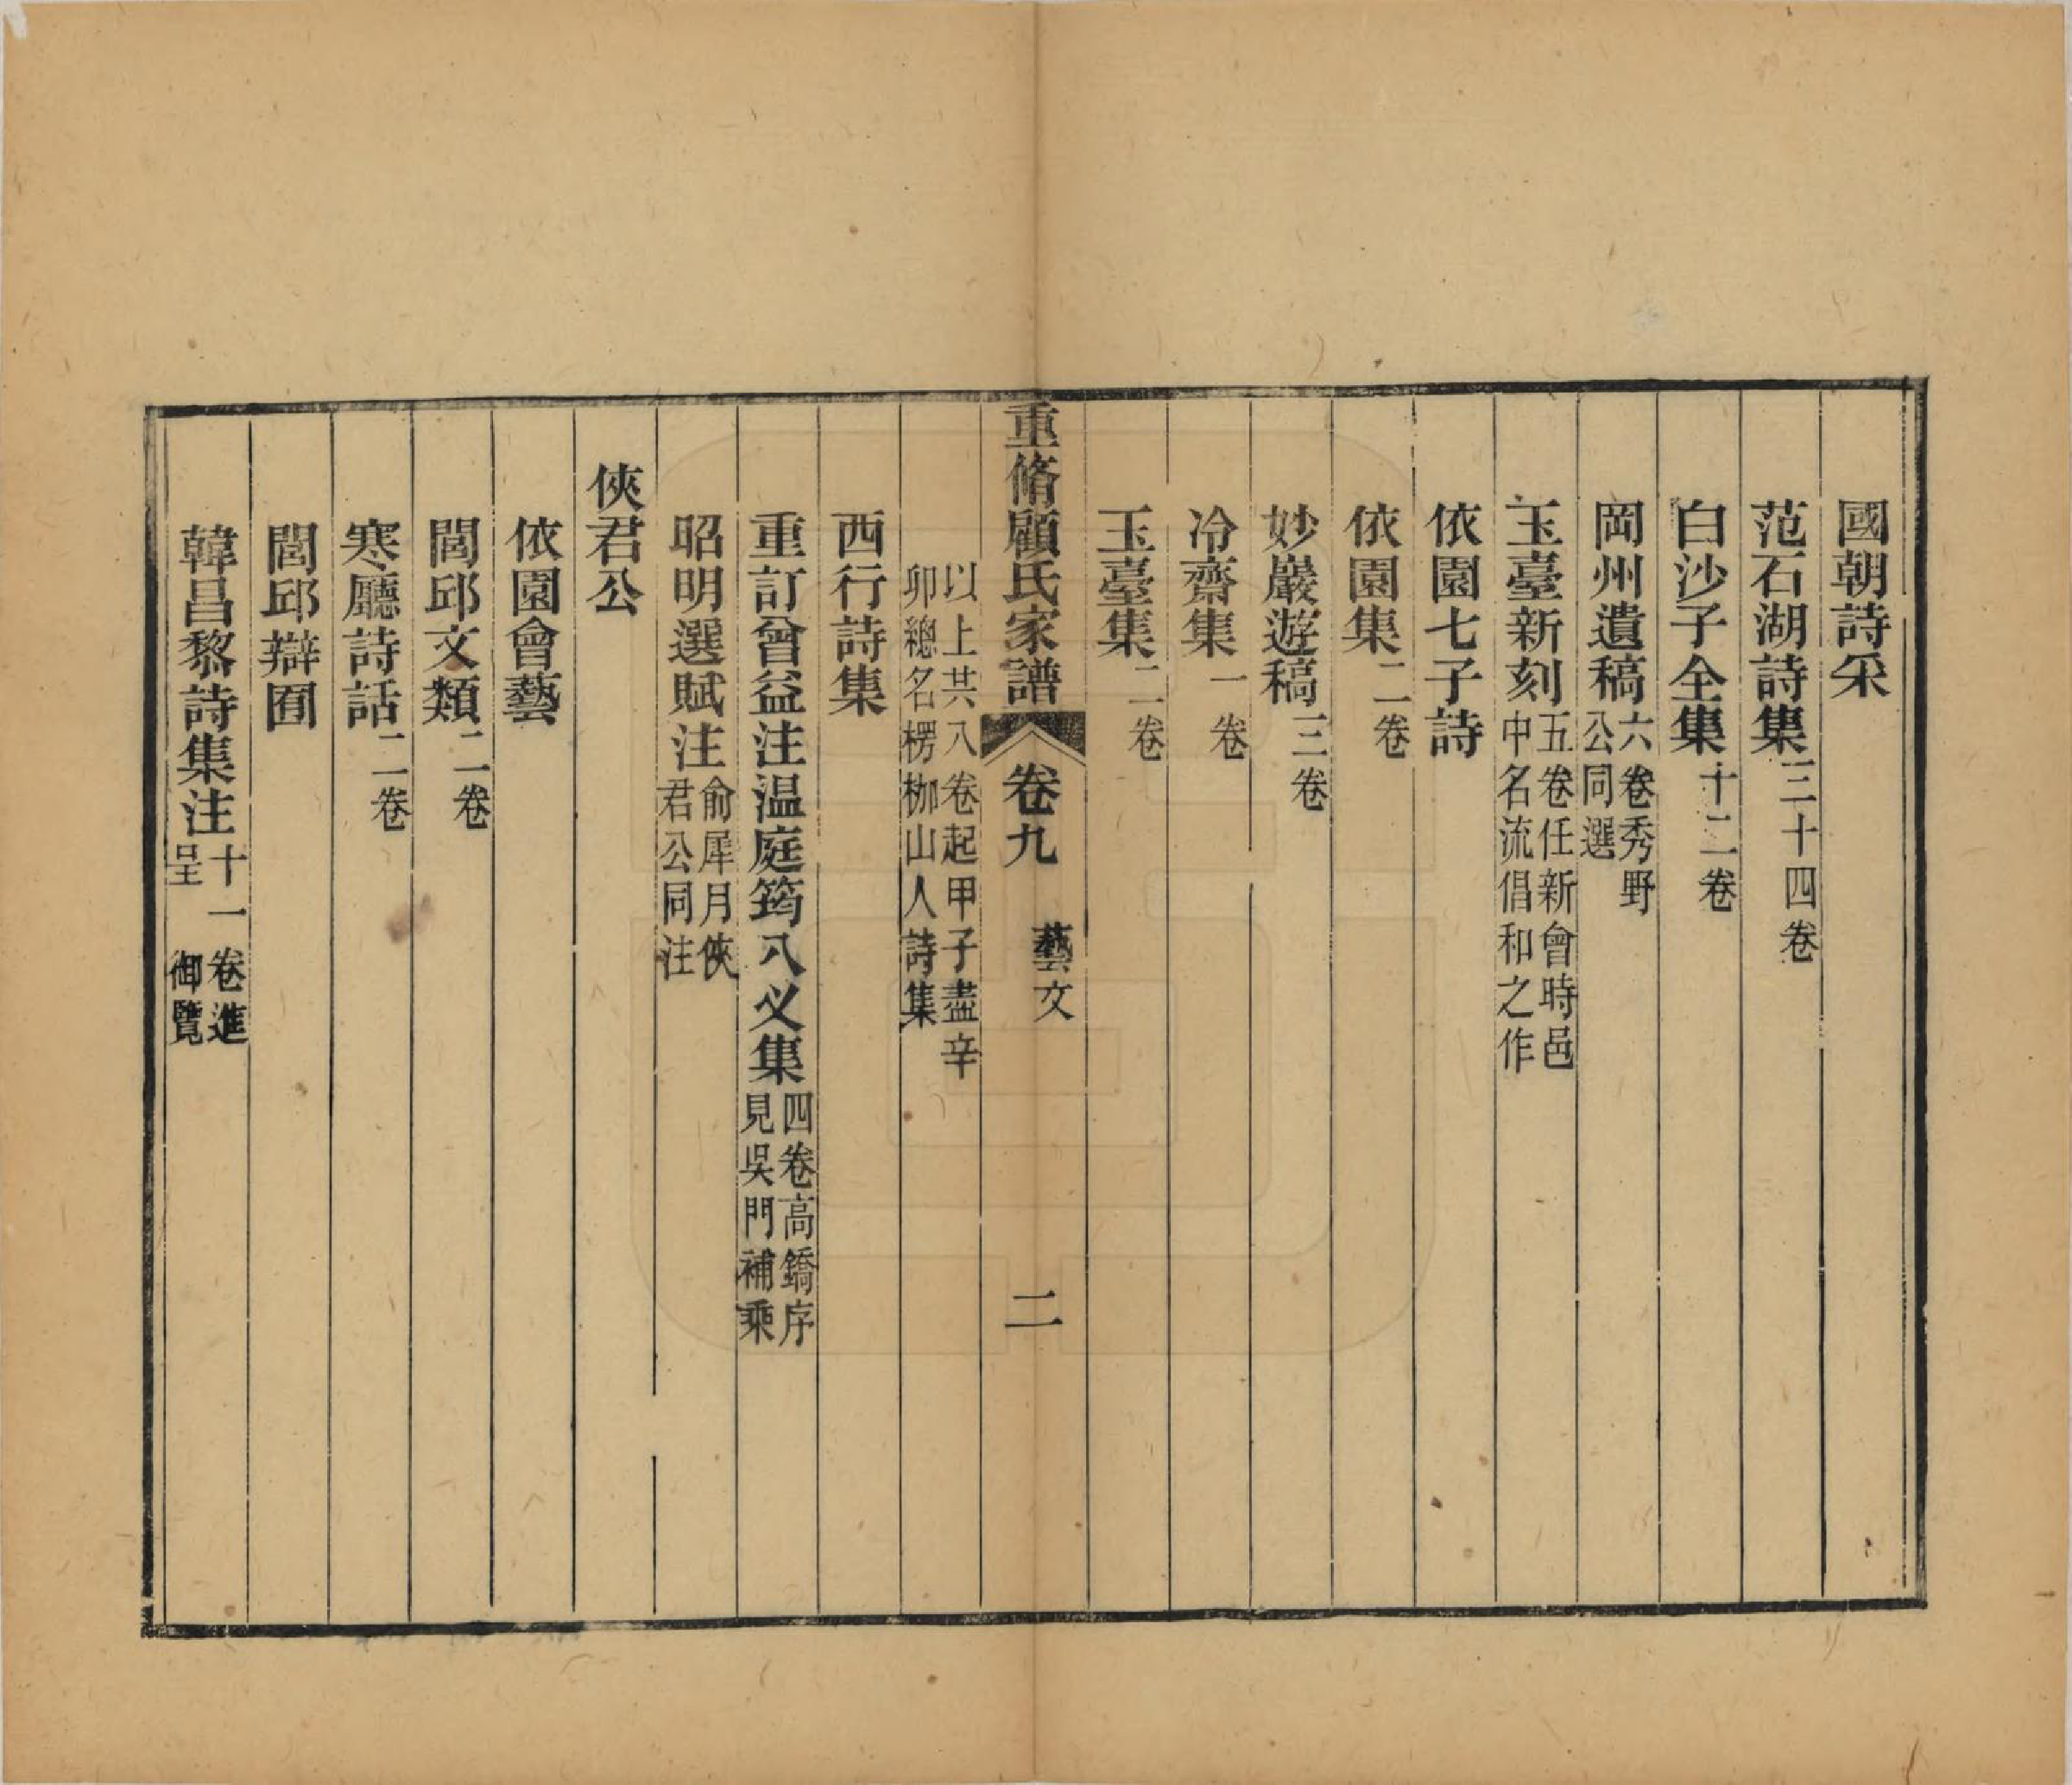 國朝詩采
范石湖詩集三十四卷
白沙子全集十二卷
岡州遺稿六卷秀野公同選
玉臺新刻五卷任新會時邑中名流倡和之作
依園七子詩
依園集二卷
妙巖遊稿三卷
冷齋集一卷
玉臺集二卷
重脩顧氏家譜 卷九 藝文 二
以上共八卷起甲子盡辛卯總名楞枷山人詩集
西行詩集
重訂曾益注温庭筠八义集四卷高鐈序見吳門補乘
昭明選賦注俞犀月俠君公同注
俠君公
依園會藝
閭邱文類二卷
寒廳詩話二卷
閭邱辯囿
韓昌黎詩集注十一卷進呈 御覽